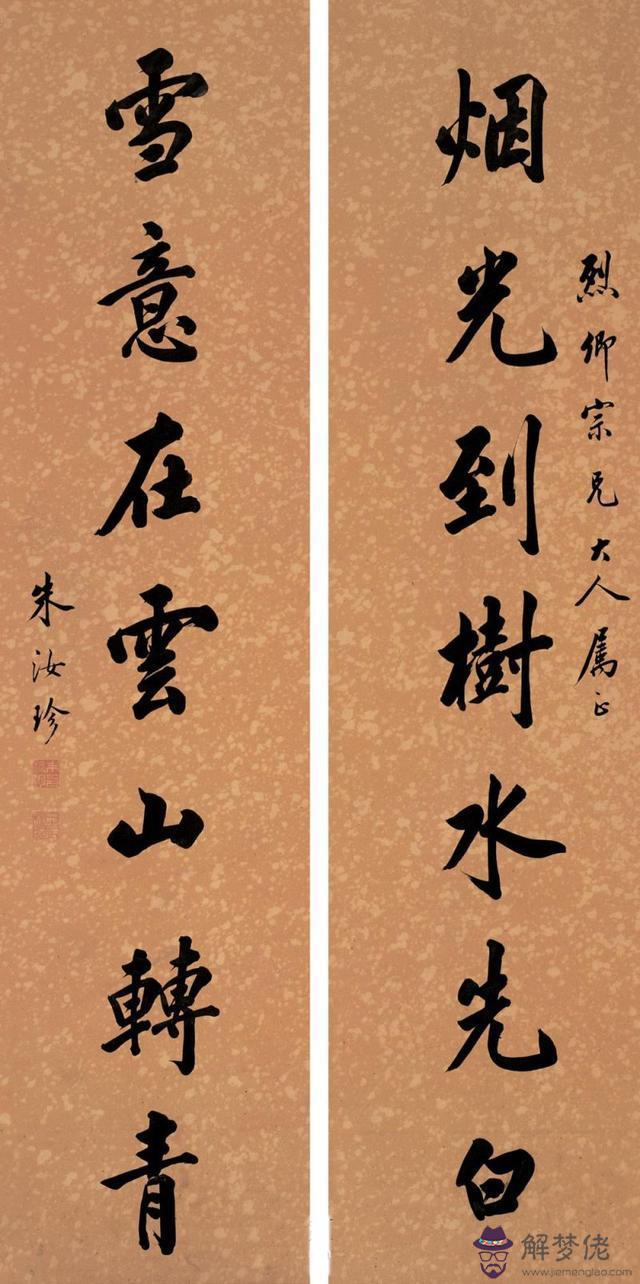 烈卿宗兄大人属正
烟光到樹水先白
雪意在雲山轉青
朱汝珍
解梦佬
www.jiemenglao.com